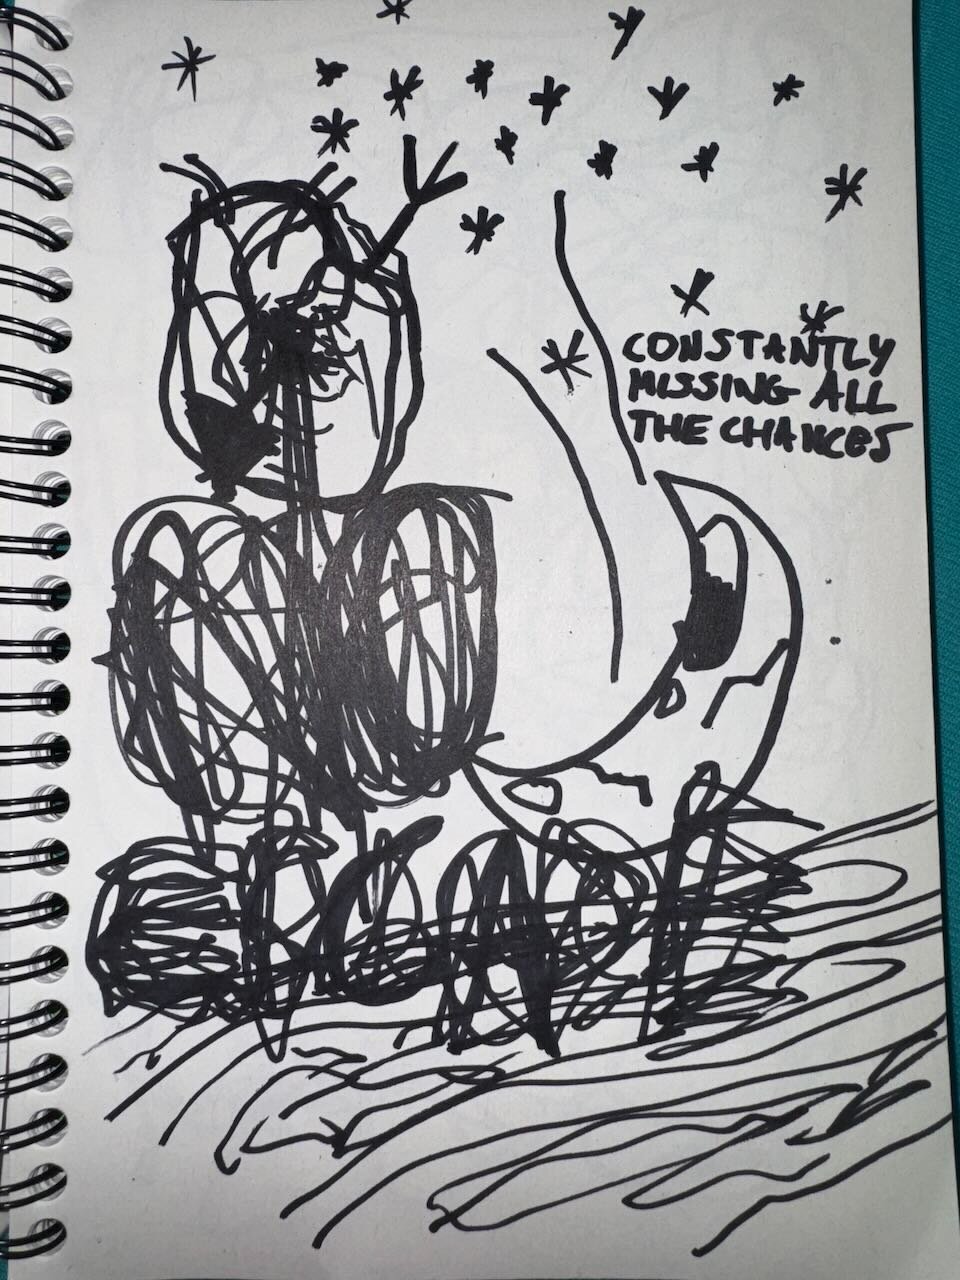 CONSTANTLY
MISSING ALL
THE CHANCES